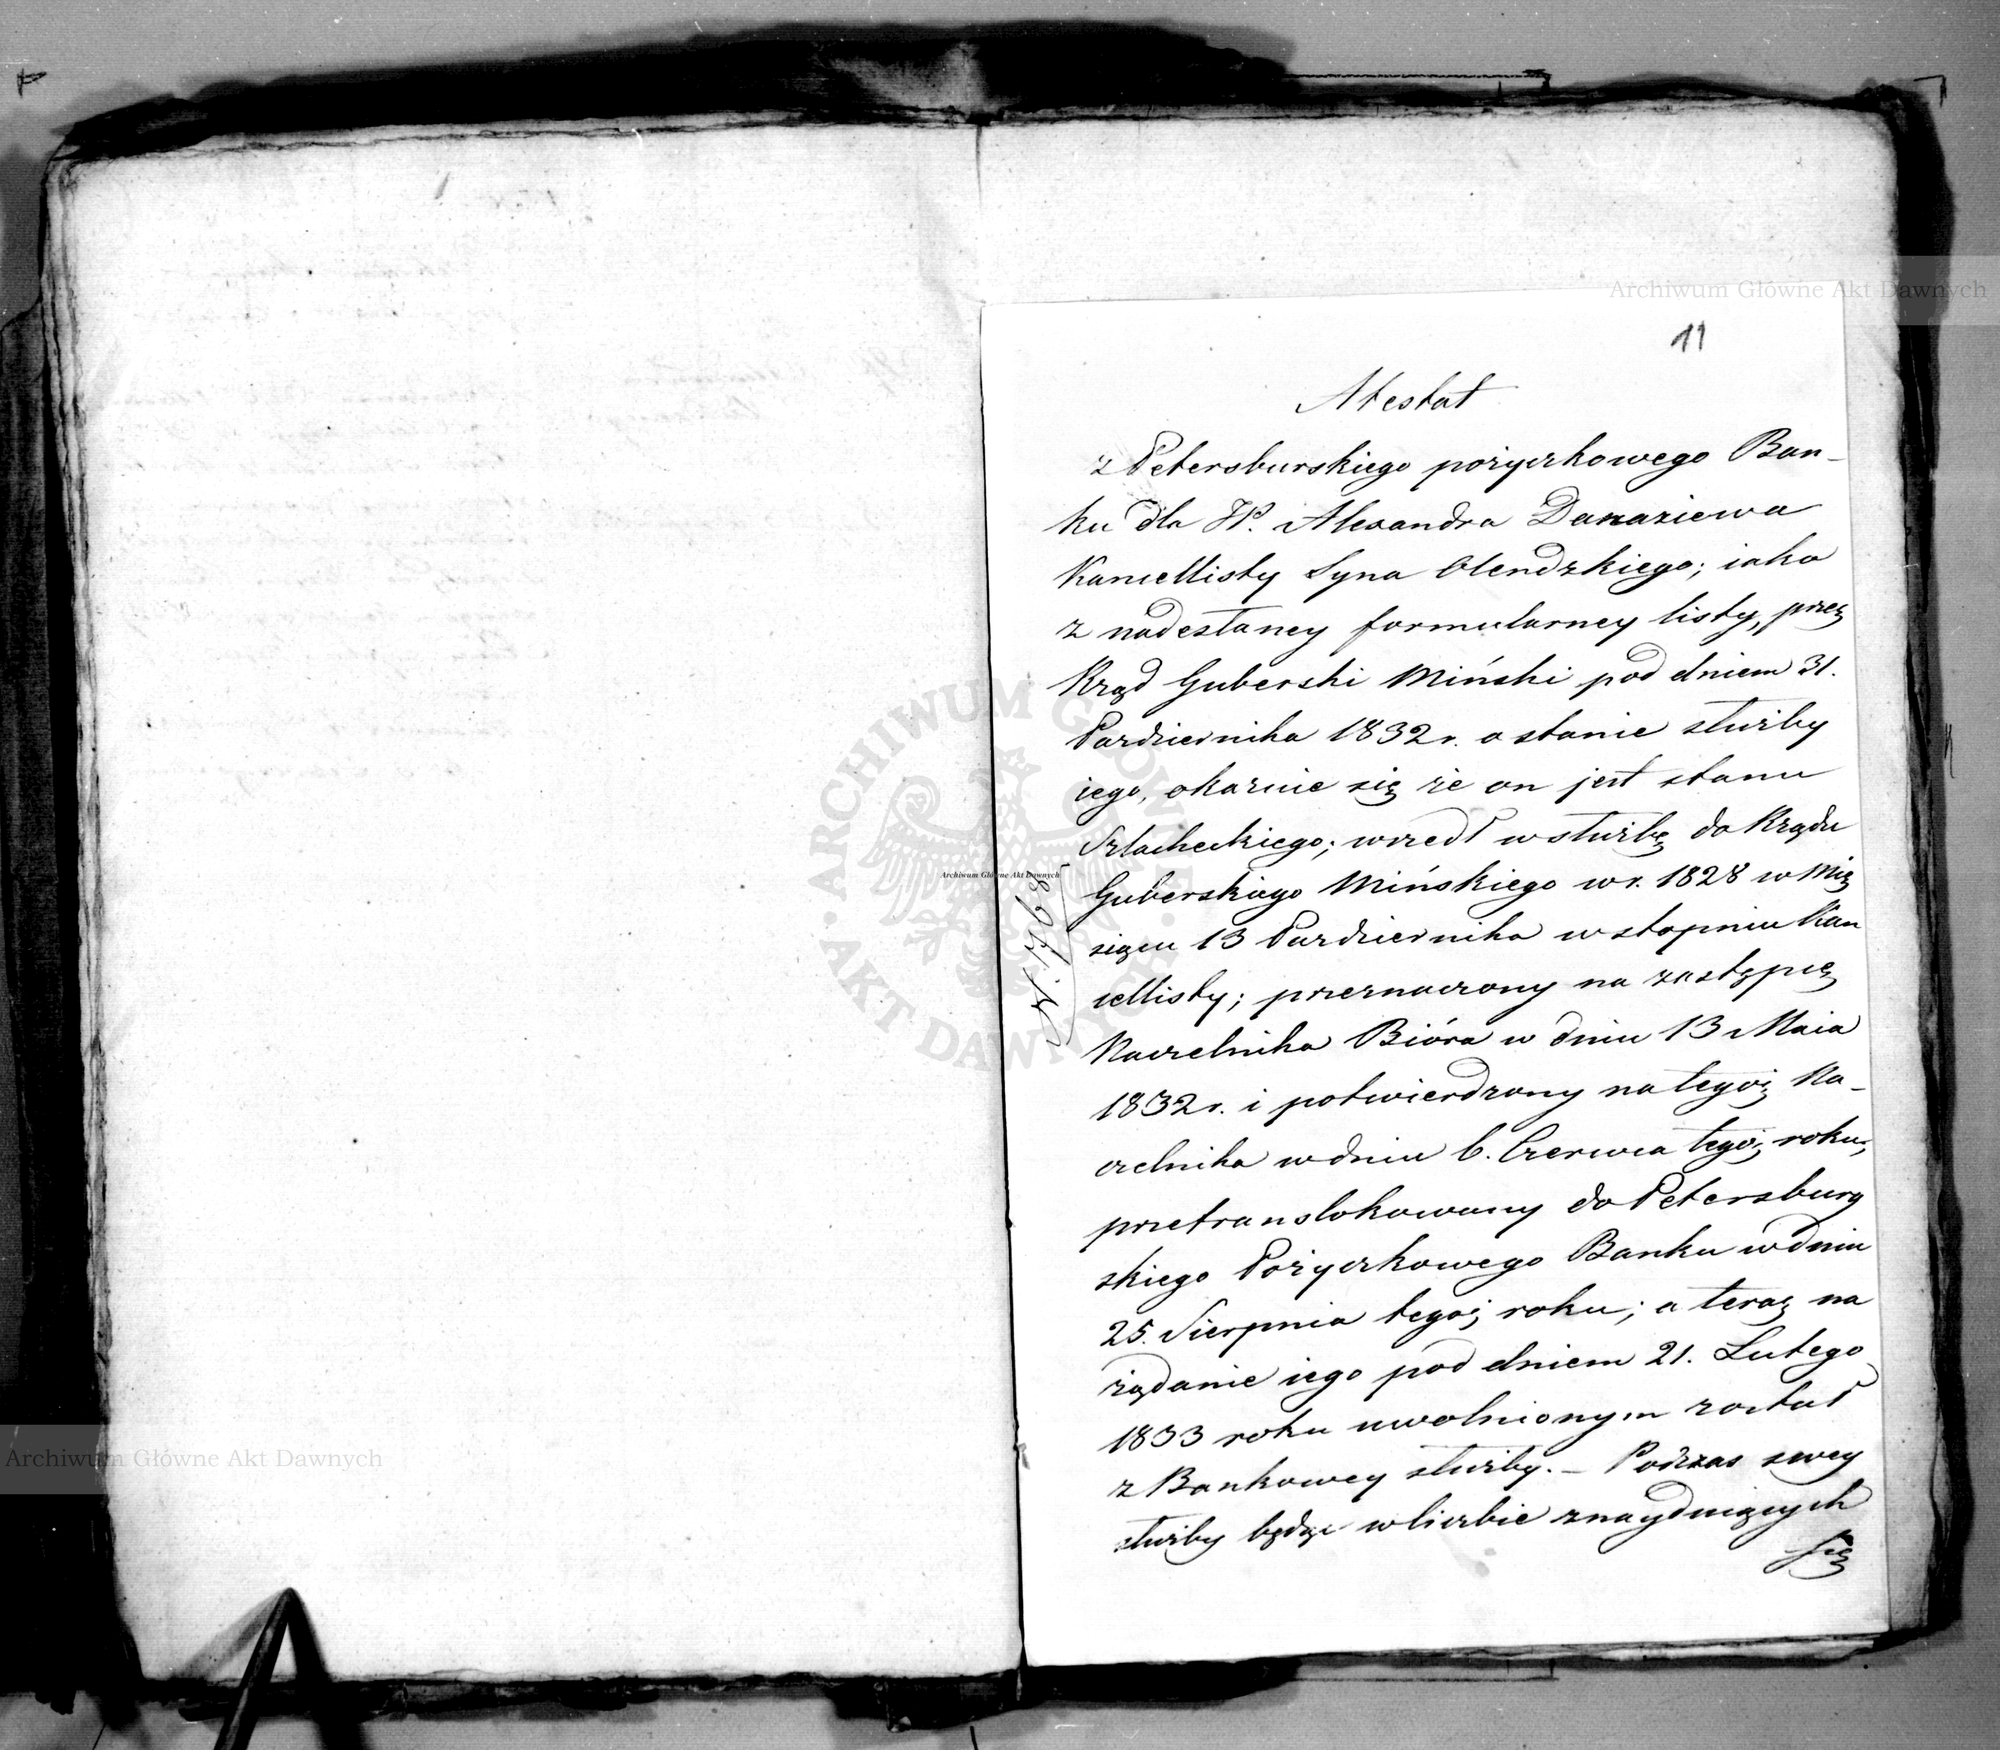 11
Atestat
z Petersburskiego pożyczkowego Ban-
ku dla W. Alexandra Damaziewa
Kancellisty Syna Olendzkiego; iako
z nadesłaney formularney listy, przez
Rząd Guberski Miński pod dniem 31.
Pazdziernika 1832 r. o stanie służby
iego, okazuie się że on jest stanu
Szlacheckiego; wszedł w służbę do Rządu
Guberskiego Mińskiego w r. 1828 w Mie
siącu 13 Pazdziernika w stopniu Kan
cellisty; przeznaczony na zastępcę
Naczelnika Bióra w dniu 13 Maia
1832 r. i potwierdzony na tegoż Na-
czelnika w dniu 6. Czerwca tegoż roku,
przetranslokowany do Petersburg
skiego Pożyczkowego Banku w dniu
25. Sierpnia tegoż roku; a teraz na
żądanie iego pod dniem 21. Lutego
1833 roku uwolnionym został
z Bankowey służby. – Podczas swey
służby będąc w liczbie znayduiących
się
N. 1768
Archiwum Główne Akt Dawnych
Archiwum Główne Akt Dawnych
Archiwum Główne Akt Dawnych
ARCHIWUM GŁÓWNE AKT DAWNYCH